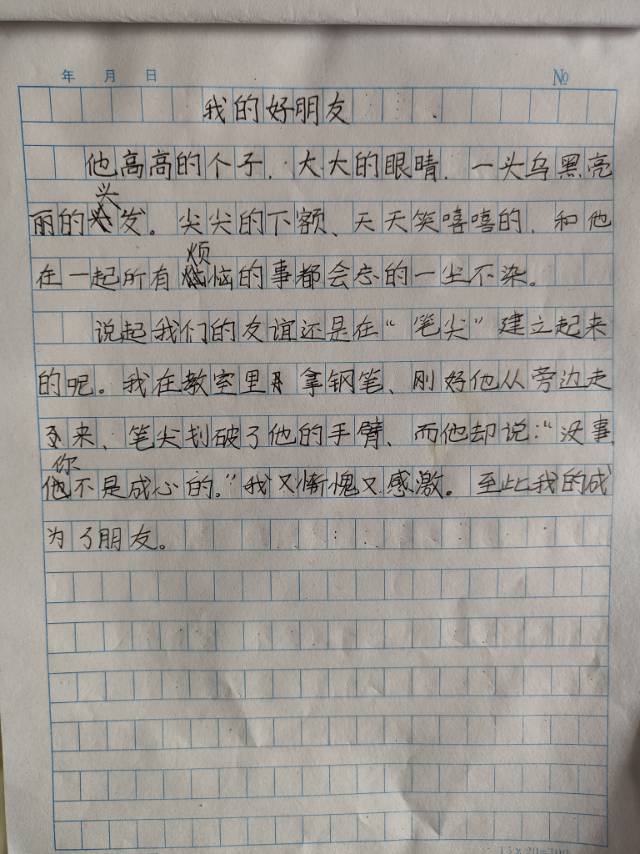 年 月 日 №
我的好朋友
他高高的个子、大大的眼睛、一头乌黑亮
丽的头发。尖尖的下额、天天笑嘻嘻的、和他
在一起所有烦恼的事都会忘的一尘不染。
说起我们的友谊还是在“笔尖”建立起来
的呢。我在教室里 拿钢笔、刚好他从旁边走
来、笔尖划破了他的手臂、而他却说:“没事
你不是成心的。”我又惭愧又感激。至此我的成
为了朋友。